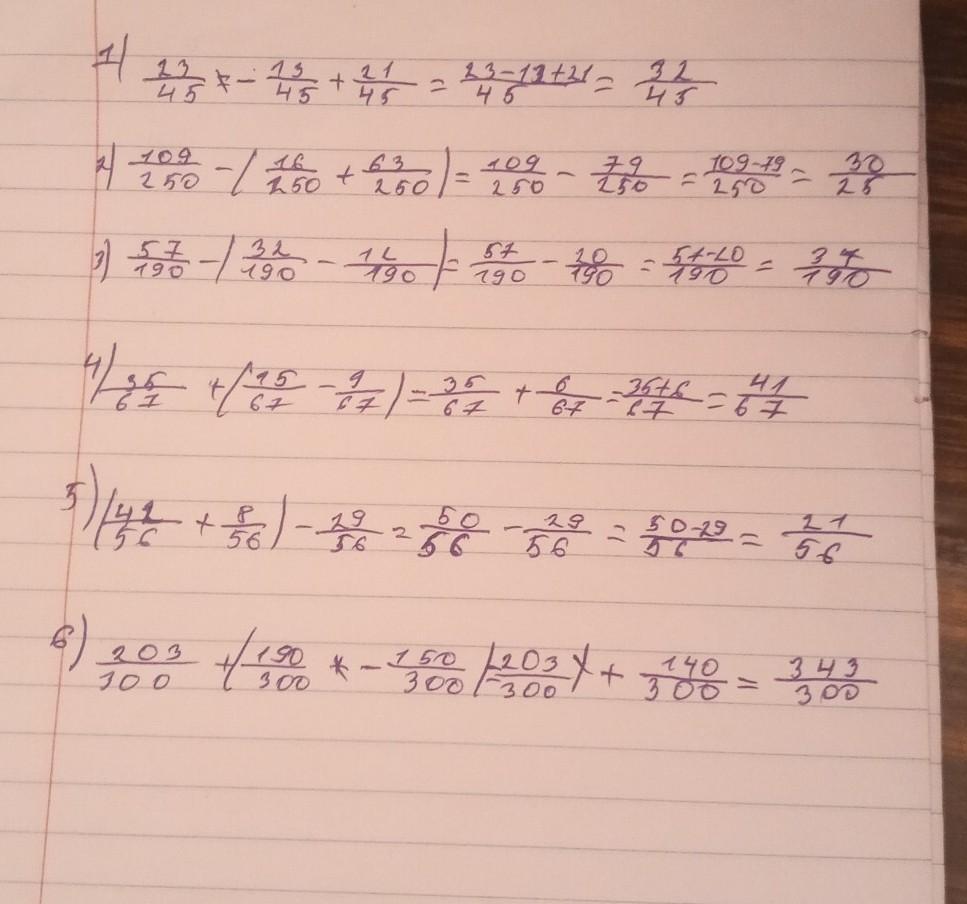 1) 23/45 - 13/45 + 21/45 = 23-12+21/45 = 32/45
2) 109/250 - (16/250 + 63/250) = 109/250 - 79/250 = 109-79/250 = 30/25
3) 57/190 - (32/190 - 12/190) = 57/190 - 20/190 = 57-20/190 = 37/190
4) 35/67 + (15/67 - 9/67) = 35/67 + 6/67 = 35+6/67 = 41/67
5) (42/56 + 8/56) - 29/56 = 50/56 - 29/56 = 50-29/56 = 21/56
6) 203/300 + (190/300 - 150/300) = 203/300 + 140/300 = 343/300